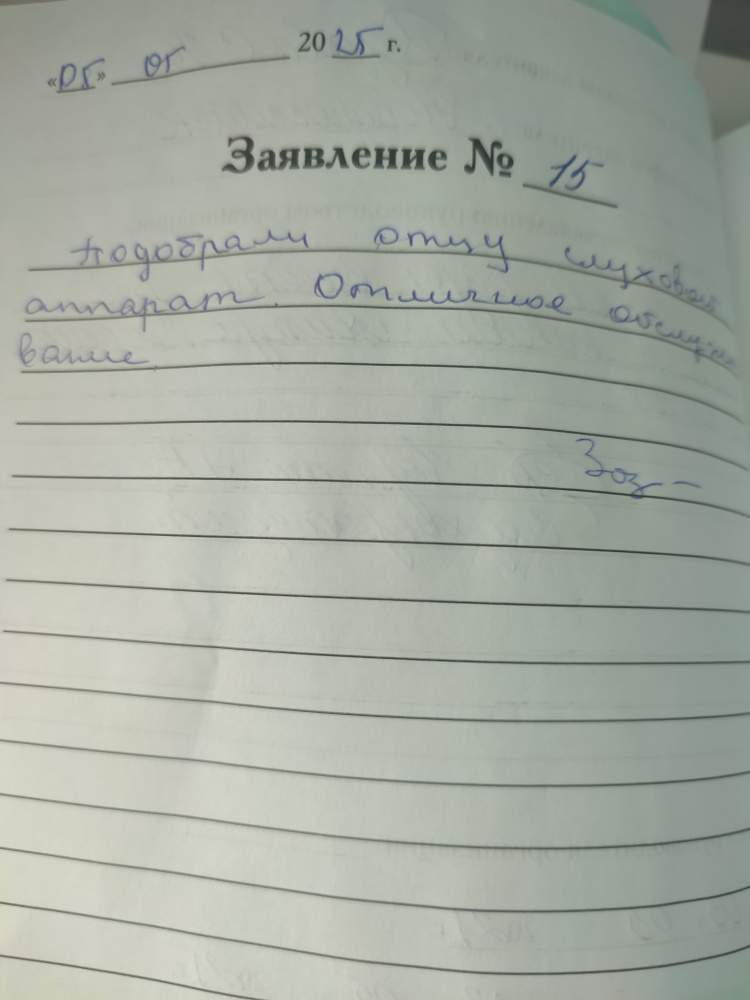 «05» 05 2025 г.
Заявление № 15
Подобрали отцу слуховой
аппарат. Отличное обслужи
вание.